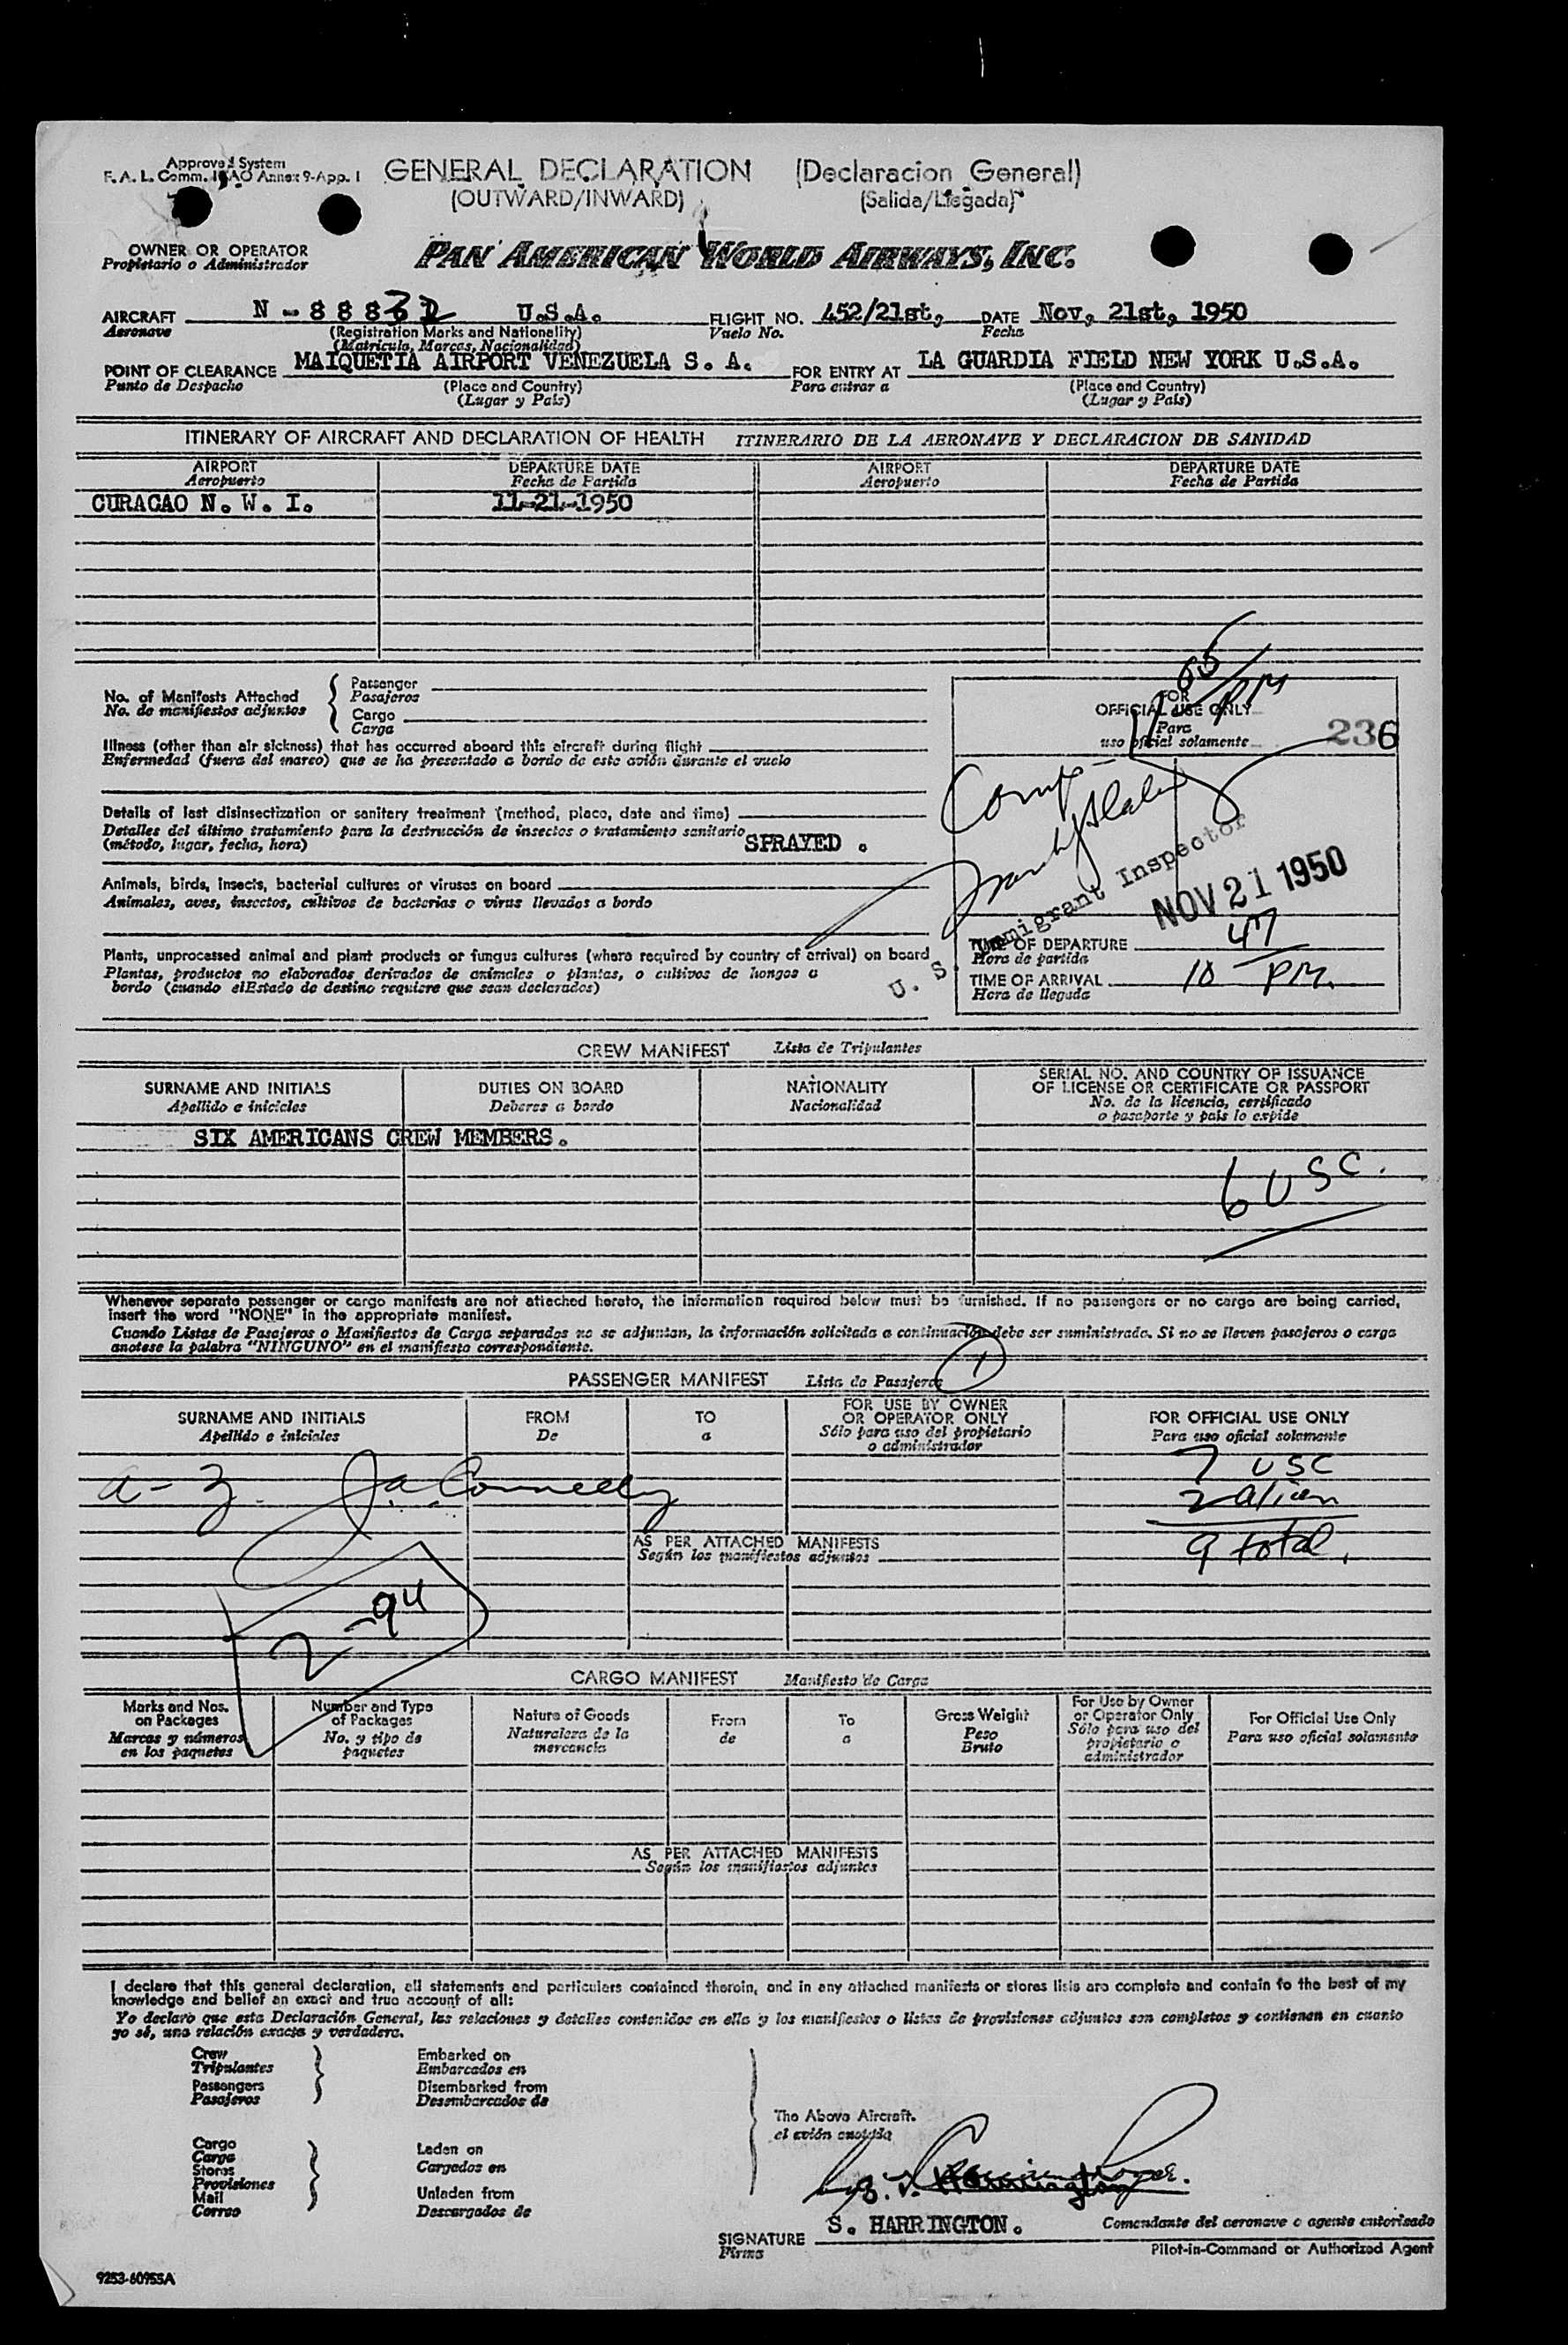 Approved System
F. A. L. Comm. ICAO Annex 9-App. 1
GENERAL DECLARATION (Declaracion General)
(OUTWARD/INWARD) (Salida/Llegada)
OWNER OR OPERATOR
Propietario o Administrador
PAN AMERICAN WORLD AIRWAYS, INC.
AIRCRAFT N-88832 U.S.A. FLIGHT NO. 452/21st, DATE Nov, 21st, 1950
Aeronave (Registration Marks and Nationality) Vuelo No. Fecha
(Matricula, Marcas, Nacionalidad)
POINT OF CLEARANCE MAIQUETIA AIRPORT VENEZUELA S. A. FOR ENTRY AT LA GUARDIA FIELD NEW YORK U.S.A.
Punto de Despacho (Place and Country) Para entrar a (Place and Country)
(Lugar y País) (Lugar y País)
ITINERARY OF AIRCRAFT AND DECLARATION OF HEALTH ITINERARIO DE LA AERONAVE Y DECLARACION DE SANIDAD
AIRPORT DEPARTURE DATE AIRPORT DEPARTURE DATE
Aeropuerto Fecha de Partida Aeropuerto Fecha de Partida
CURACAO N. W. I. 11-21-1950
No. of Manifests Attached
No. de manifiestos adjuntos
Passenger
Pasajeros
Cargo
Carga
11 05 PM
FOR
OFFICIAL USE ONLY
Para
uso oficial solamente
236
Illness (other than air sickness) that has occurred aboard this aircraft during flight
Enfermedad (fuera del mareo) que se ha presentado a bordo de este avión durante el vuelo
Details of last disinsectization or sanitary treatment (method, place, date and time)
Detalles del último tratamiento para la destrucción de insectos o tratamiento sanitario
(método, lugar, fecha, hora) SPRAYED .
Comp-
U. S. Immigrant Inspector
NOV 21 1950
Animals, birds, insects, bacterial cultures or viruses on board
Animales, aves, insectos, cultivos de bacterias o virus llevados a bordo
Plants, unprocessed animal and plant products or fungus cultures (where required by country of arrival) on board
Plantas, productos no elaborados derivados de animales o plantas, o cultivos de hongos a
bordo (cuando elEstado de destino requiere que sean declarados)
TIME OF DEPARTURE
Hora de partida
TIME OF ARRIVAL 10 47 PM.
Hora de llegada
CREW MANIFEST Lista de Tripulantes
SURNAME AND INITIALS DUTIES ON BOARD NATIONALITY SERIAL NO. AND COUNTRY OF ISSUANCE
OF LICENSE OR CERTIFICATE OR PASSPORT
Apellido e iniciales Deberes a bordo Nacionalidad No. de la licencia, certificado
o pasaporte y país lo expide
SIX AMERICANS CREW MEMBERS.
6 USC.
Whenever separate passenger or cargo manifests are not attached hereto, the information required below must be furnished. If no passengers or no cargo are being carried,
insert the word "NONE" in the appropriate manifest.
Cuando Listas de Pasajeros o Manifiestos de Carga separados no se adjuntan, la información solicitada a continuación debe ser suministrada. Si no se lleven pasajeros o carga
anotese la palabra "NINGUNO" en el manifiesto correspondiente.
PASSENGER MANIFEST Lista de Pasajeros 1
SURNAME AND INITIALS FROM TO FOR USE BY OWNER
OR OPERATOR ONLY FOR OFFICIAL USE ONLY
Apellido e iniciales De a Sólo para uso del propietario
o administrador Para uso oficial solamente
7 USC
a-z. J.a. Connelly 2 alien
9 total.
AS PER ATTACHED MANIFESTS
Según los manifiestos adjuntos
2-94
CARGO MANIFEST Manifiesto de Carga
Marks and Nos.
on Packages
Marcas y números
en los paquetes
Number and Type
of Packages
No. y tipo de
paquetes
Nature of Goods
Naturaleza de la
mercancía
From
de
To
a
Gross Weight
Peso
Bruto
For Use by Owner
or Operator Only
Sólo para uso del
propietario o
administrador
For Official Use Only
Para uso oficial solamente
AS PER ATTACHED MANIFESTS
Según los manifiestos adjuntos
I declare that this general declaration, all statements and particulars contained therein, and in any attached manifests or stores lists are complete and contain to the best of my
knowledge and belief an exact and true account of all:
Yo declaro que esta Declaración General, las relaciones y detalles contenidos en ella y los manifiestos o listas de provisiones adjuntos son completos y contienen en cuanto
yo sé, una relación exacta y verdadera.
Crew
Tripulantes
Passengers
Pasajeros
Embarked on
Embarcados en
Disembarked from
Desembarcados de
The Above Aircraft.
el avión
Cargo
Carga
Stores
Provisiones
Mail
Correo
Laden on
Cargados en
Unladen from
Descargados de
S. HARRINGTON. Comandante del aeronave o agente autorizado
SIGNATURE
Firma
Pilot-in-Command or Authorized Agent
9253-60955A